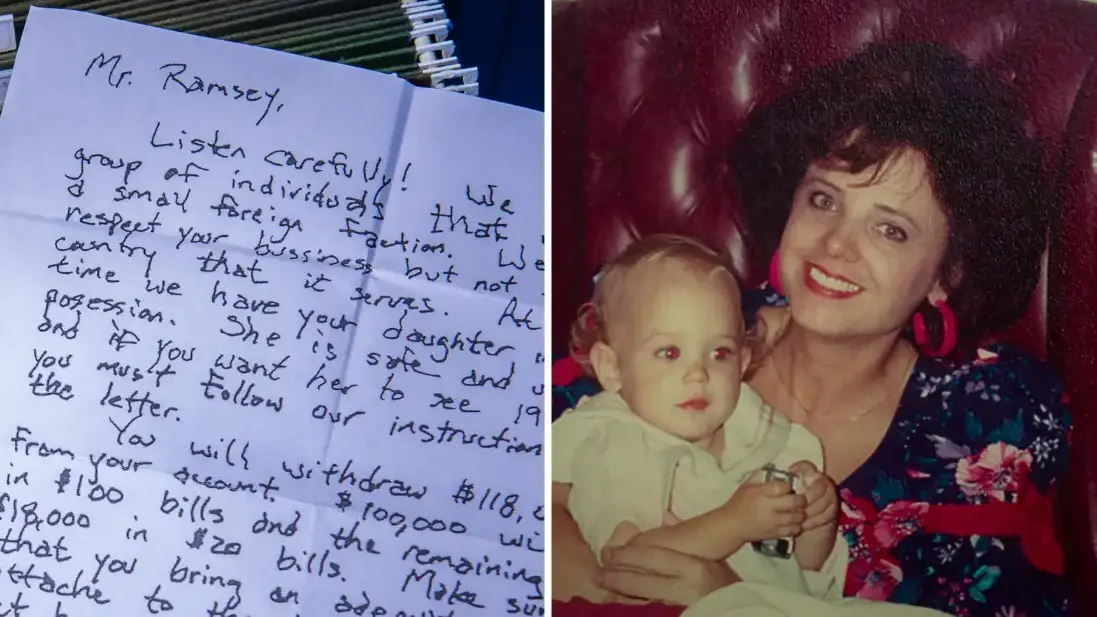 Mr. Ramsey,
Listen carefully! We
group of individuals that
a small foreign faction. We
respect your bussiness but not
country that it serves. At
time we have your daughter
posession. She is safe and
and if you want her to see 19
you must follow our instruction
the letter.
You will withdraw $118,
from your account. $100,000
in $100 bills and the remaining
$18,000 in $20 bills. Make
that you bring an
attache to the